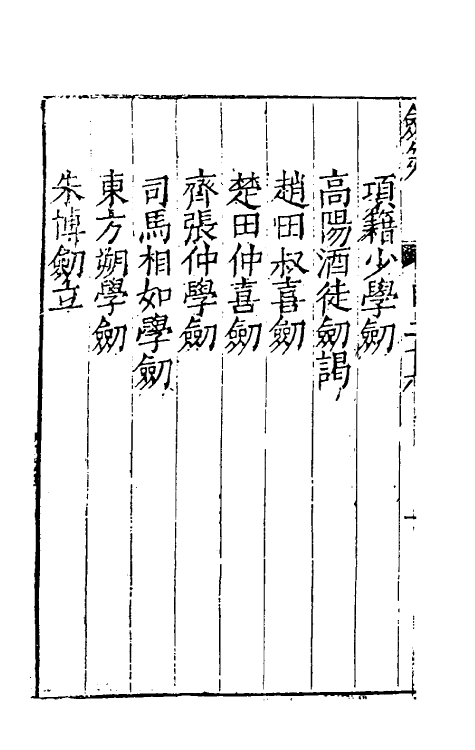 項籍少學劒
高陽酒徒劒謁
趙田叔喜劒
楚田仲喜劒
齊張仲學劒
司馬相如學劒
東方朔學劒
朱博劒立